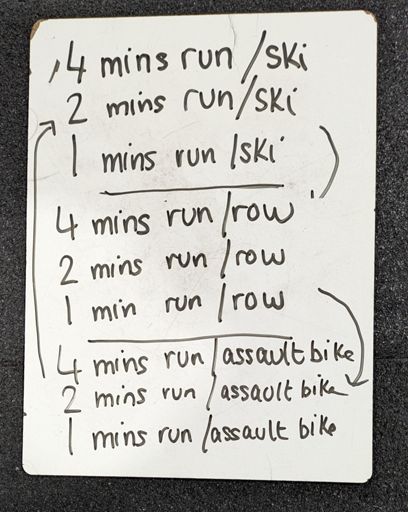 4 mins run /ski
2 mins run/ski
1 mins run /ski
4 mins run/row
2 mins run /row
1 min run /row
4 mins run/assault bike
2 mins run /assault bike
1 mins run /assault bike